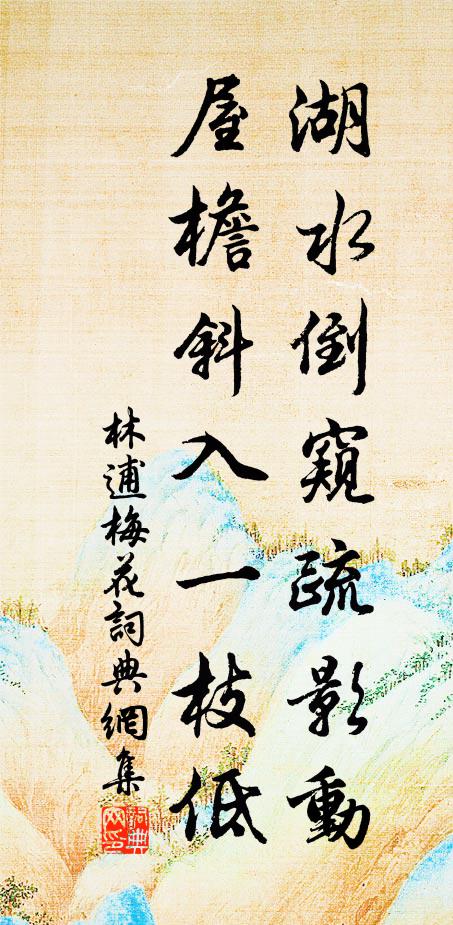 湖水倒窺疏影動
屋檐斜入一枝低
林逋梅花詞典網集
詞典網印